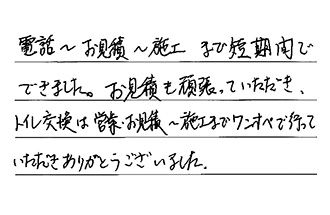 電話～お見積～施工 まで短期間で
できました。お見積も頑張っていただき、
トイレ交換は営業・お見積～施工までワンオペで行って
いただきありがとうございました。